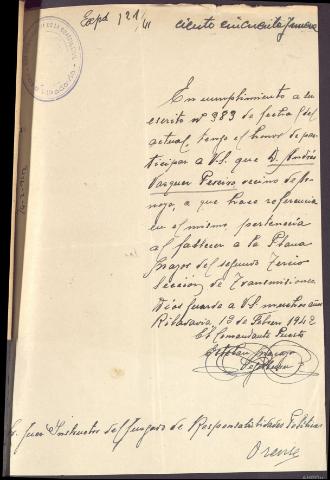 Expd 121/41
ciento cincuenta y nueve
En cumplimiento a su
escrito nº 989 de fecha del
actual, tengo el honor de par-
ticipar a V.S. que D. Andrés
Vazquez Pereiro vecino de
a que hace referencia
en el mismo, pertenecia
al fallecer a la Plana
Mayor del segundo Tercio
Sección de Transmisiones.
Dios guarde a V.S. muchos años
Ribadavia 18 de Febrero 1942
El Comandante Puesto
Esteban
Sr. Juez Instructor del Juzgado de Responsabilidades Politicas
Orense